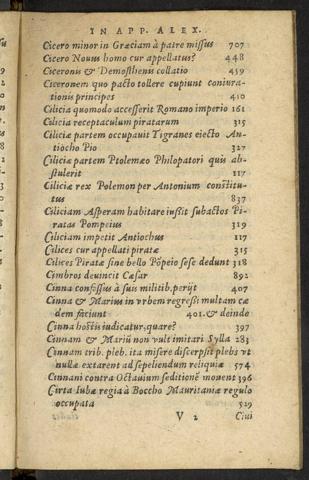 IN APP. ALEX.
Cicero minor in Græciam à patre missus 707
Cicero Nouus homo cur appellatus? 448
Ciceronis & Demosthenis collatio 459
Ciceronem quo pacto tollere cupiunt coniura-
tionis principes 410
Cilicia quomodo accesserit Romano imperio 161
Cilicia receptaculum piratarum 315
Ciliciæ partem occupauit Tigranes eiecto An-
tiocho Pio 327
Ciliciæ partem Ptolemæo Philopatori quis ab-
stulerit 117
Ciliciæ rex Polemon per Antonium constitu-
tus 837
Ciliciam Asperam habitare iußit subactos Pi-
ratas Pompeius 319
Ciliciam impetit Antiochus 117
Cilices cur appellati piratæ 315
Cilices Piratæ sine bello Põpeio sese dedunt 318
Cimbros deuincit Cæsar 892
Cinna confossus à suis militib. perijt 407
Cinna & Marius in vrbem regreßi multam cæ
dem faciunt 401. & deinde
Cinna hostis iudicatur, quare? 397
Cinnam & Mariũ non vult imitari Sylla 283
Cinnam trib. pleb. ita misere discerpsit plebs vt
nullæ extarent ad sepeliendum reliquiæ 574
Cinnani contra Octauium seditionẽ mouent 396
Cirta Iubæ regia à Boccho Mauritaniæ regulo
occupata 529
V 2 Ciui